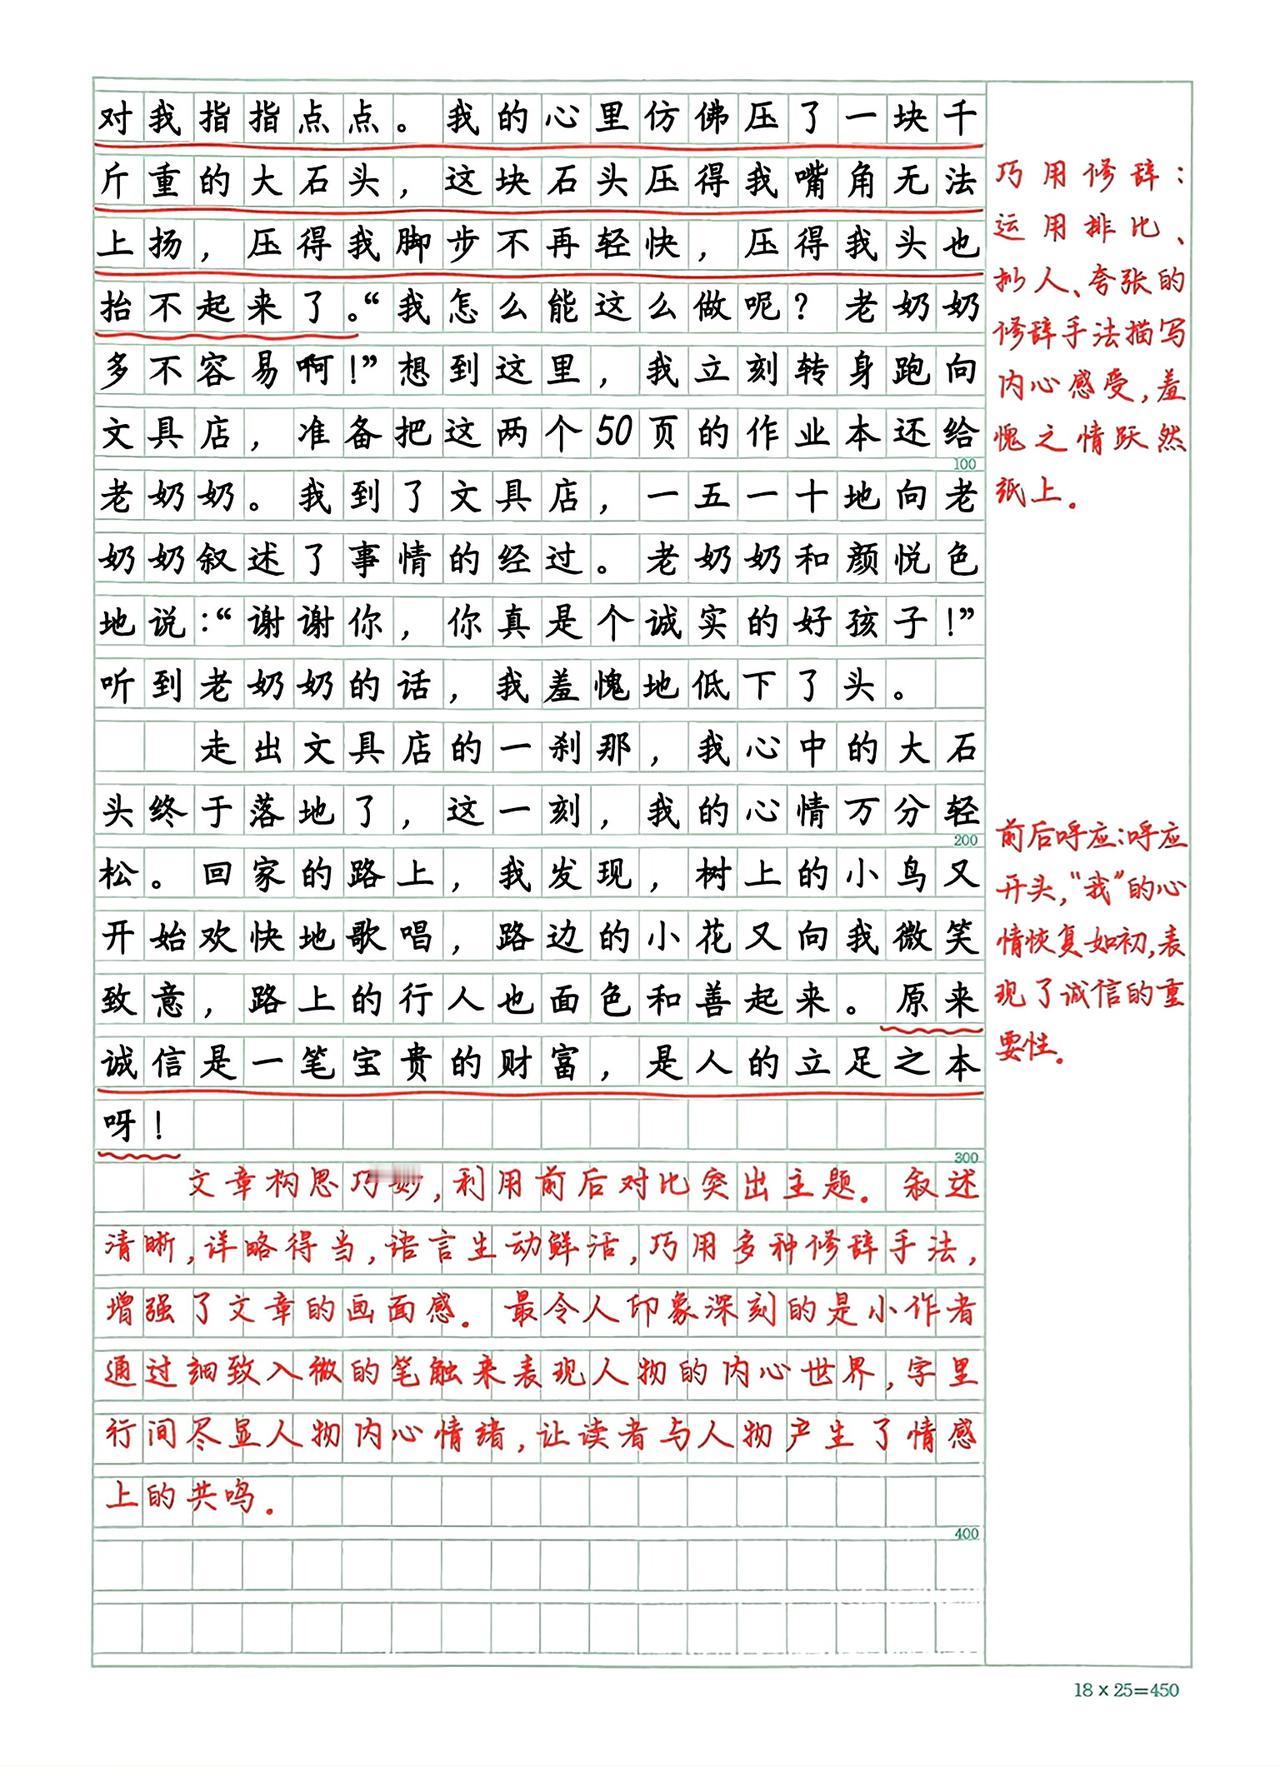 对我指指点点。我的心里仿佛压了一块千
斤重的大石头，这块石头压得我嘴角无法
上扬，压得我脚步不再轻快，压得我头也
抬不起来了。“我怎么能这么做呢？老奶奶
多不容易啊！”想到这里，我立刻转身跑向
文具店，准备把这两个50页的作业本还给
100
老奶奶。我到了文具店，一五一十地向老
奶奶叙述了事情的经过。老奶奶和颜悦色
地说：“谢谢你，你真是个诚实的好孩子！”
听到老奶奶的话，我羞愧地低下了头。
走出文具店的一刹那，我心中的大石
头终于落地了，这一刻，我的心情万分轻
200
松。回家的路上，我发现，树上的小鸟又
开始欢快地歌唱，路边的小花又向我微笑
致意，路上的行人也面色和善起来。原来
诚信是一笔宝贵的财富，是人的立足之本
呀！
300
文章构思巧妙，利用前后对比突出主题。叙述
清晰，详略得当，语言生动鲜活，巧用多种修辞手法，
增强了文章的画面感。最令人印象深刻的是小作者
通过细致入微的笔触来表现人物的内心世界，字里
行间尽显人物内心情绪，让读者与人物产生了情感
上的共鸣。
400
巧用修辞：
运用排比、
拟人、夸张的
修辞手法描写
内心感受，羞
愧之情跃然
纸上。
前后呼应：呼应
开头，“我”的心
情恢复如初，表
现了诚信的重
要性。
18×25=450